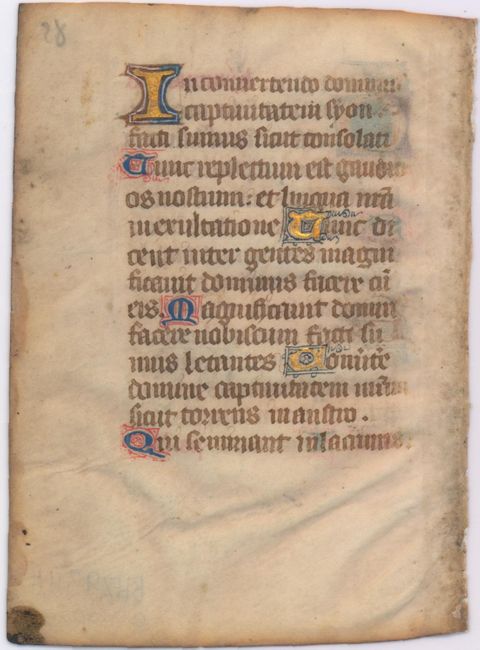 In conuertendo dominus
captiuitatem syon
facti sumus sicut consolati
Tunc repletum est gaudio
os nostrum : et lingua nr̄a
in exultatione Tunc di
cent inter gentes magni
ficauit dominus facere cū
eis Magnificauit domin
facere nobiscum facti su
mus letantes Conūte
domine captiuitatem nr̄am
sicut torrens in austro .
Qui seminant in lacrimis